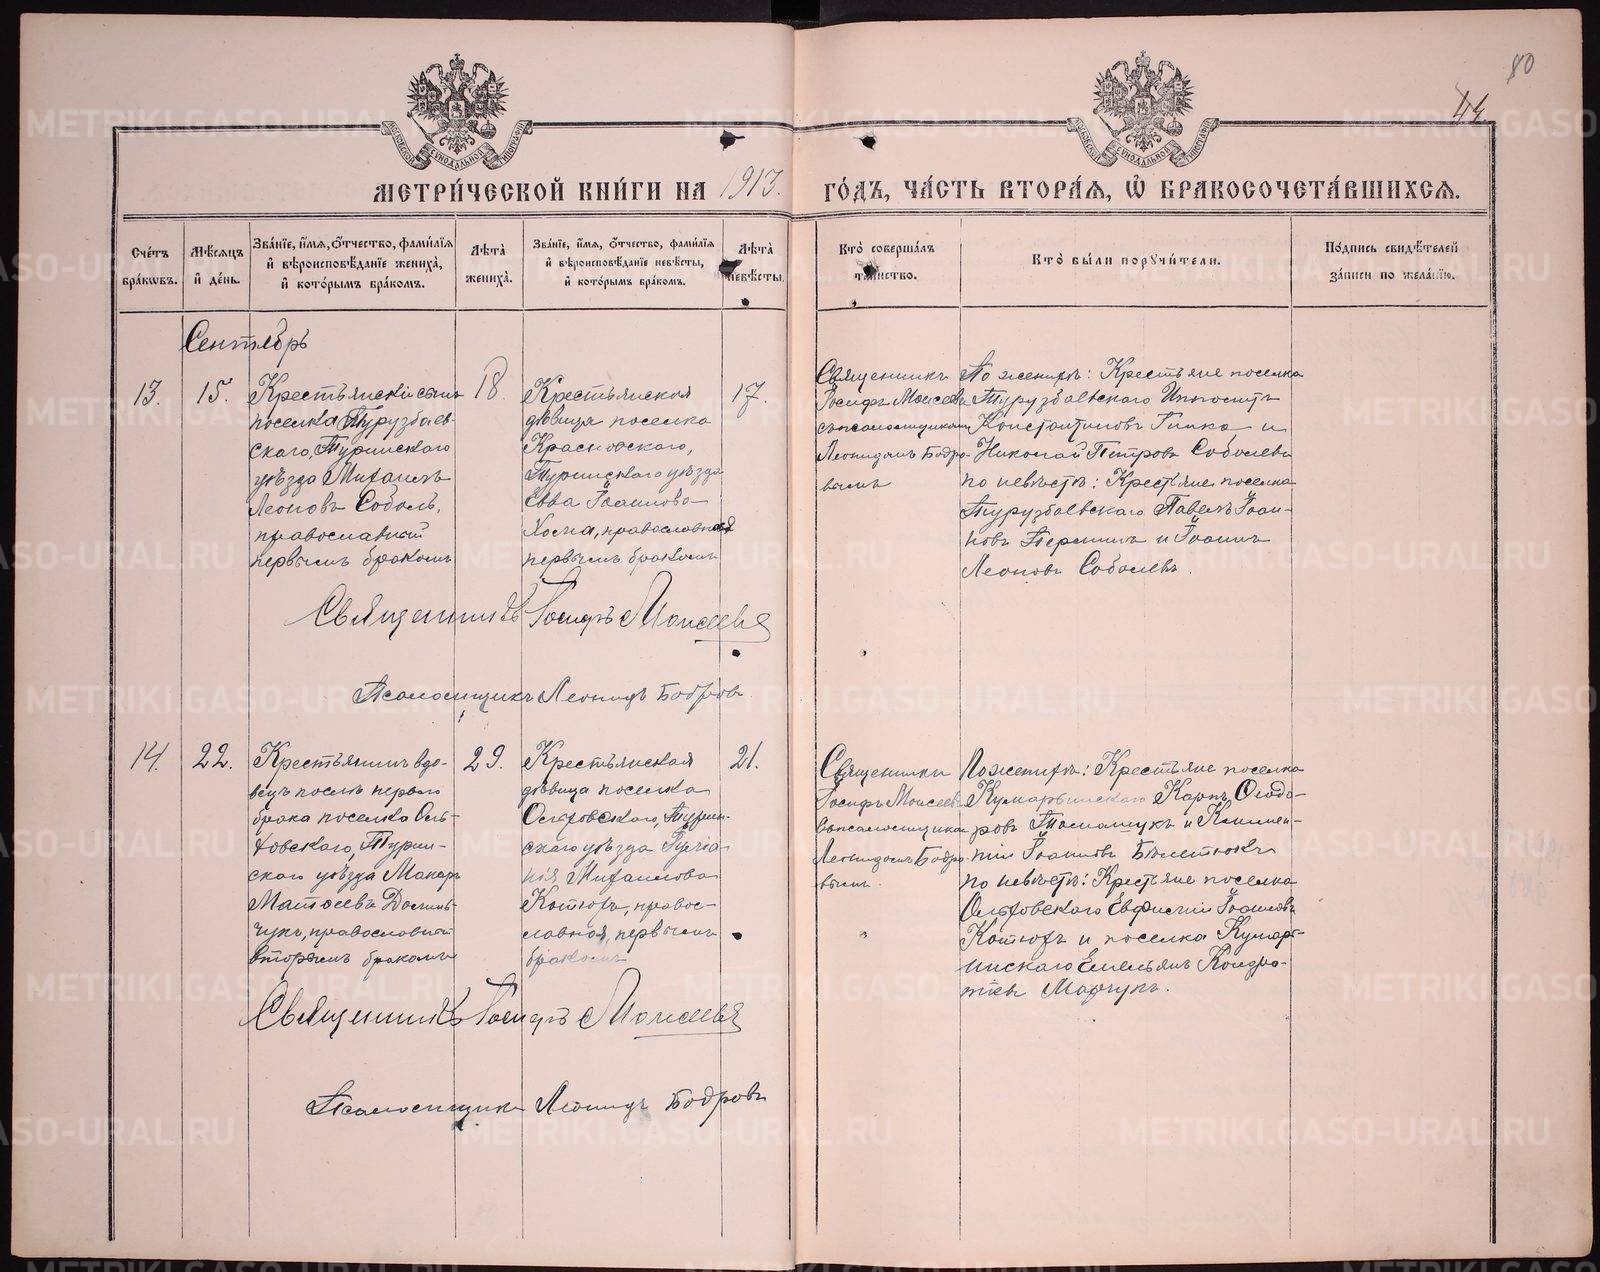 80
44
МЕТРИ́ЧЕСКОЙ КНИ́ГИ НА 1913. ГО́ДЪ, ЧА́СТЬ ВТОРА́Я, Ѽ БРАКОСОЧЕТА́ВШИХСЯ.
Сче́тъ бра́кѡвъ.
Мѣ́сяцъ и҆ де́нь.
Зва́нїе, и҆́мя, ѻ҆́тчество, фами́лїя
и҆ вѣроисповѣ́данїе жениха̀,
и҆ кото́рымъ бра́комъ.
Лѣ́та̀ жениха̀.
Зва́нїе, и҆́мя, ѻ҆́тчество, фами́лїя
и҆ вѣроисповѣ́данїе невѣ́сты,
и҆ кото́рымъ бра́комъ.
Лѣ́та̀ невѣ́сты.
Кто̀ соверша́лъ та́инство.
Кто̀ бы́ли порꙋчи́тели.
По́дпись свидѣ́телей
за́писи по жела́нїю.
Сентябрь
13.
15.
Крестьянскій сынъ
поселка Турузбаев-
скаго, Туринскаго
уѣзда Михаилъ
Леоновъ Соболь,
православный
первымъ бракомъ
18.
Крестьянская
дѣвица поселка
Красновскаго,
Туринскаго уѣзда
Евва Іоаннова
православная
первымъ бракомъ
17.
Священникъ
Іосифъ Моисеевъ
съ псаломщикомъ
Леонидомъ Бодро-
вымъ
По женихѣ: Крестьяне поселка
Турузбаевскаго Ипполитъ
Константиновъ Гинко и
Николай Петровъ Соболевъ
по невѣстѣ: Крестьяне поселка
Турузбаевскаго Павелъ Іоан-
новъ и Іоаннъ
Леоновъ Соболевъ.
Священникъ Іосифъ Моисеевъ
Псаломщикъ Леонидъ Бодровъ
14.
22.
Крестьянинъ вдо-
вецъ послѣ перваго
брака поселка Оль-
ховскаго, Турин-
скаго уѣзда Макаръ
Матѳеевъ Домань-
чукъ, православный
вторымъ бракомъ
29.
Крестьянская
дѣвица поселка
Ольховскаго, Турин-
скаго уѣзда Іуліа-
нія Михаилова
Котюхъ, правос-
лавная, первымъ
бракомъ
21.
Священникъ
Іосифъ Моисеевъ
съ псаломщикомъ
Леонидомъ Бодро-
вымъ.
По женихѣ: Крестьяне поселка
Кумарьинскаго Карпъ Ѳеодо-
ровъ Томащукъ и Климен-
тій Іоанновъ
по невѣстѣ: Крестьяне поселка
Ольховскаго Евфимій Іоанновъ
Котюхъ и поселка Кумарь-
инскаго Емельянъ Кондра-
тьевъ Марчукъ.
Священникъ Іосифъ Моисеевъ
Псаломщикъ Леонидъ Бодровъ
METRIKI.GASO-URAL.RU